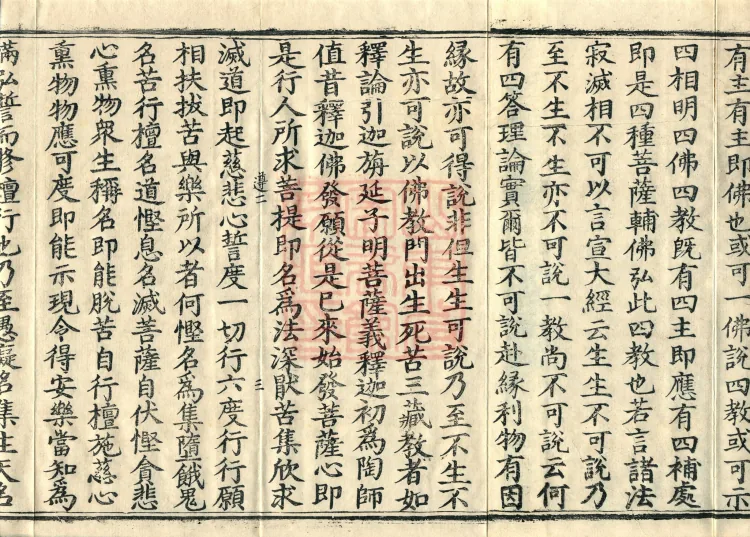 有主有主即佛也或可一佛說四教或可示
四相明四佛四教旣有四主即應有四補處
即是四種菩薩輔佛弘此四教也若言諸法
寂滅相不可以言宣大經云生生不可說乃
至不生不生亦不可說一教尚不可說云何
有四荅理論實爾皆不可說赴緣利物有因
緣故亦可得說非但生生可說乃至不生不
生亦可說以佛教門出生死苦三藏教者如
釋論引迦旃延子明菩薩義釋迦初爲陶師
值昔釋迦佛發願從是已來始發菩薩心即
是行人所求菩提即名爲法深猒苦集欣求
遵二
三
滅道即起慈悲心誓度一切行六度行行願
相扶拔苦與樂所以者何慳名爲集墮餓鬼
名苦行檀名道慳息名滅菩薩自伏慳貪悲
心熏物衆生稱名即能脫苦自行檀施慈心
熏物物應可度即能示現令得安樂當知爲
滿弘誓而修檀行也乃至愚癡名集生天名